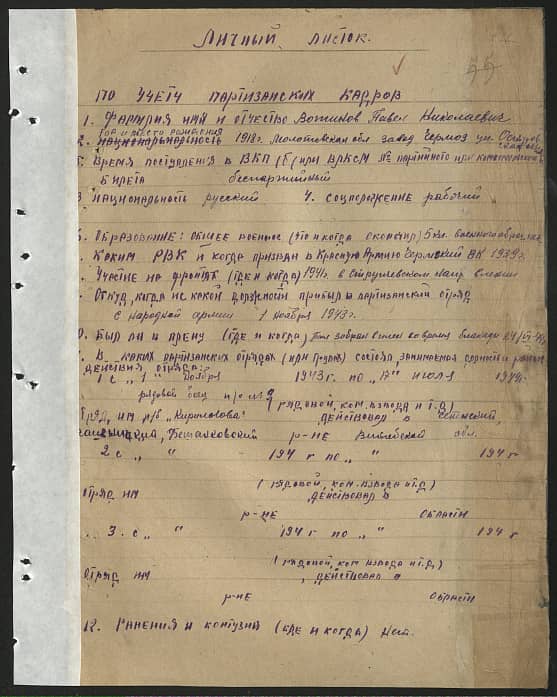 Личный листок.
по учету партизанских кадров
1. Фамилия имя и отчество Вотинов Павел Николаевич
год и место рождения
2. национальность 1918г. Молотовская обл завод Чермоз ул.
5. Время поступления в ВКП(б) или ВЛКСМ № партийного или комсомольского
билета беспартийный
3 национальность русский 4. соцположение рабочий
6. Образование: общее военное (что и когда окончил) 5 кл. военного
Каким РВК и когда призван в Красную Армию Чермозский ВК 1939г.
Участие на фронте (где и когда) 1941г. в
Откуда, когда и с какой должности прибыл в партизанский отряд
с народной армии 1 ноября 1943г.
Был ли в плену (где и когда) во время блокады
В каких партизанских отрядах (или группах) состоял, занимаемая должность и район
действия отряда:
1 с „1" ноября 1943г. по „17" июля 1944г.
рядовой боец (рядовой, ком. взвода и т.д.)
Отряд, им п/б „Кириллова" действовал в Сенненский,
Бешанковский р-не Витебской обл.
2 с „ " 194 г по „ " 194 г
(рядовой, ком. взвода и т.д.)
Отряд им действовал в
р-не области
3. с „ " 194 г по „ " 194 г
(рядовой, ком взвода и т.д.)
Отряд им , действовал в
р-не области
12. Ранения и контузии (где и когда) Нет.